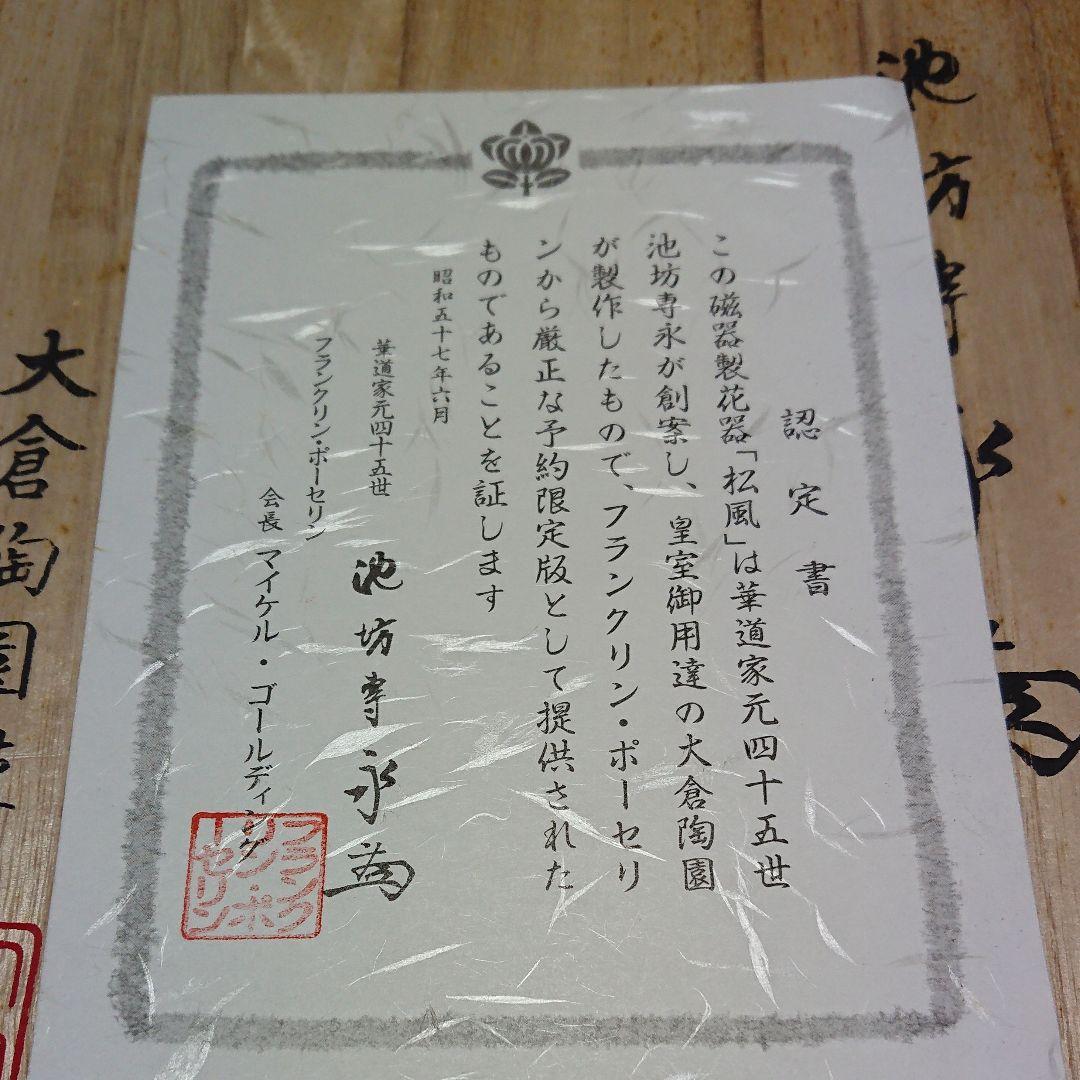 認定書
この磁器製花器「松風」は華道家元四十五世
池坊専永が創案し、皇室御用達の大倉陶園
が製作したもので、フランクリン・ポーセリ
ンから厳正な予約限定版として提供された
ものであることを証します
昭和五十七年六月
華道家元四十五世
池坊専永
フランクリン・ポーセリン
会長 マイケル・ゴールディング
フランク
リン・ポ
ーセリン
池坊専永
大倉陶園